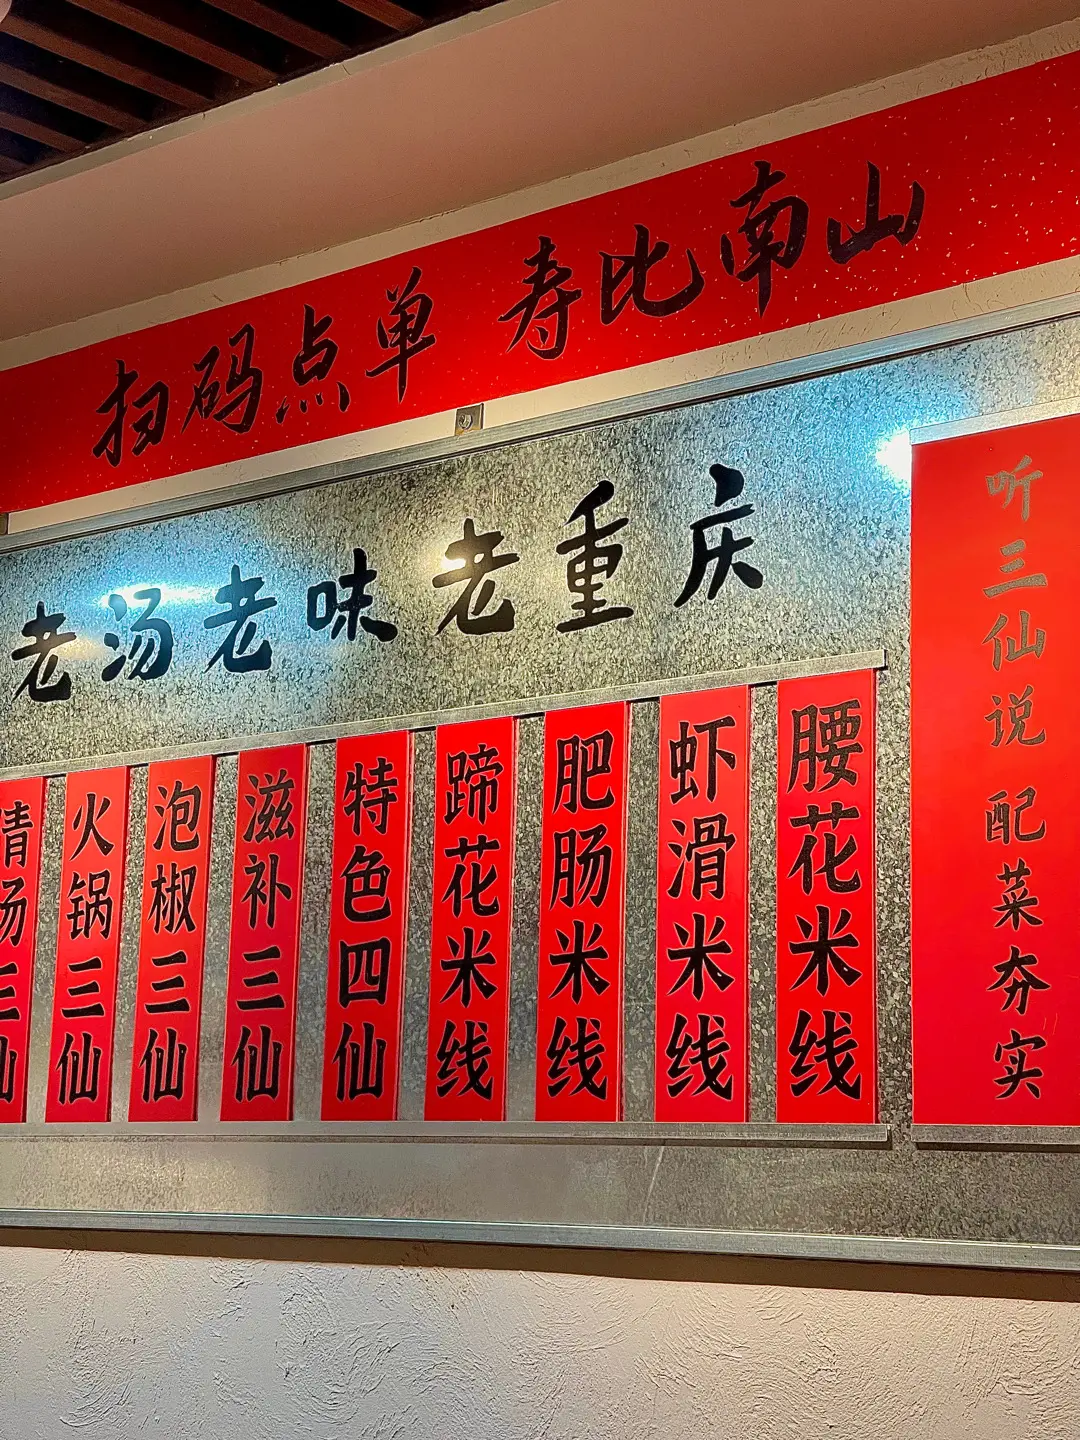 扫码点单 寿比南山
老汤老味老重庆
清汤三仙
火锅三仙
泡椒三仙
滋补三仙
特色四仙
蹄花米线
肥肠米线
虾滑米线
腰花米线
听三仙说 配菜夯实